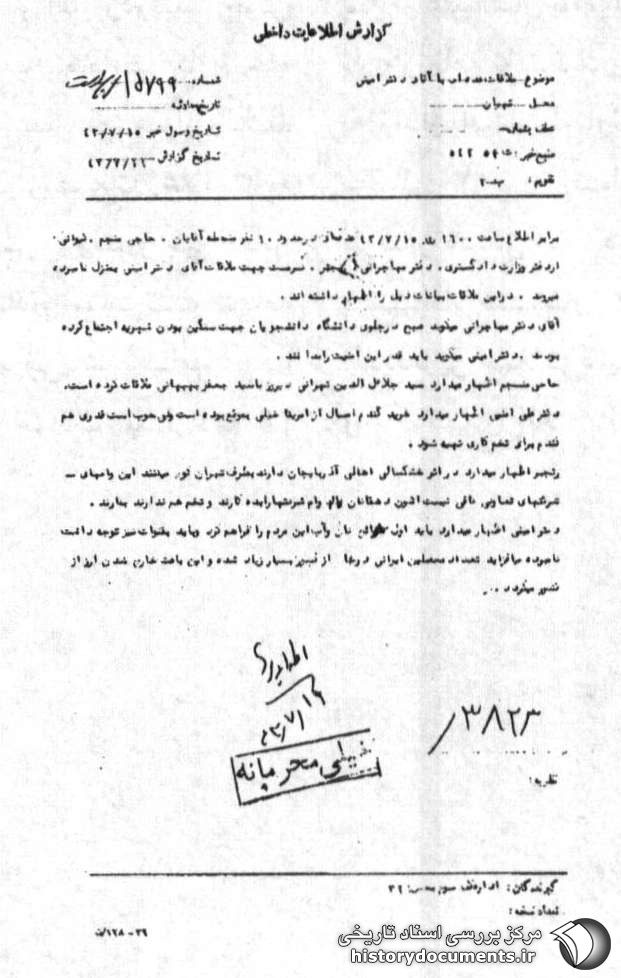 گزارش اطلاعات داخلی
موضوع ملاقات عده‌ای با آقای دکتر امینی
شماره
محل تهران
تاریخ حادثه
تاریخ وصول خبر ۴۳/۷/۱۵
منبع خبر
تاریخ گزارش
تقویم
برابر اطلاع ساعت ۱۶۰۰ روز ۴۳/۷/۱۵ در حدود ۱۰ نفر منجمله آقایان . حاجی منجم .
از دفتر وزارت دادگستری . دکتر مهاجرانی جهت ملاقات آقای دکتر امینی بمنزل نامبرده
میروند . در این ملاقات بیانات ذیل را اظهار داشته‌اند .
آقای دکتر مهاجرانی میگوید صبح در جلوی دانشگاه دانشجویان جهت سنگین بودن شهریه اجتماع کرده
بودند . دکتر امینی میگوید باید قدر این امنیت را بدانند .
حاجی منجم اظهار میدارد سید جلال الدین تهرانی دیروز با سید جعفر بهبهانی ملاقات کرده است .
دکتر علی امینی اظهار میدارد خرید گندم امسال از امریکا خیلی بموقع بوده است ولی خوب است قدری هم
گندم برای تخم کاری تهیه شود .
رنجبر اظهار میدارد در اثر خشکسالی اهالی آذربایجان دارند بطرف تهران کوچ میکنند این وامهای
شرکتهای تعاونی کافی نیست اکنون دهقانان وام شرکتها را بده کارند و تخم هم ندارند بکارند .
دکتر امینی اظهار میدارد باید اول نان و آب این مردم را فراهم کرد و باید بقنوات نیز توجه داشت
نامبرده میافزاید تعداد محصلین ایرانی در خارج از کشور بسیار زیاد شده و این باعث خارج شدن ارز از
کشور میگردد .
۳۸۲۳
۴۳/۷/
خیلی محرمانه
نظریه:
گیرندگان:
تعداد نسخه:
۳۶ - ۱۲۸/ت
مرکز بررسی اسناد تاریخی
historydocuments.ir